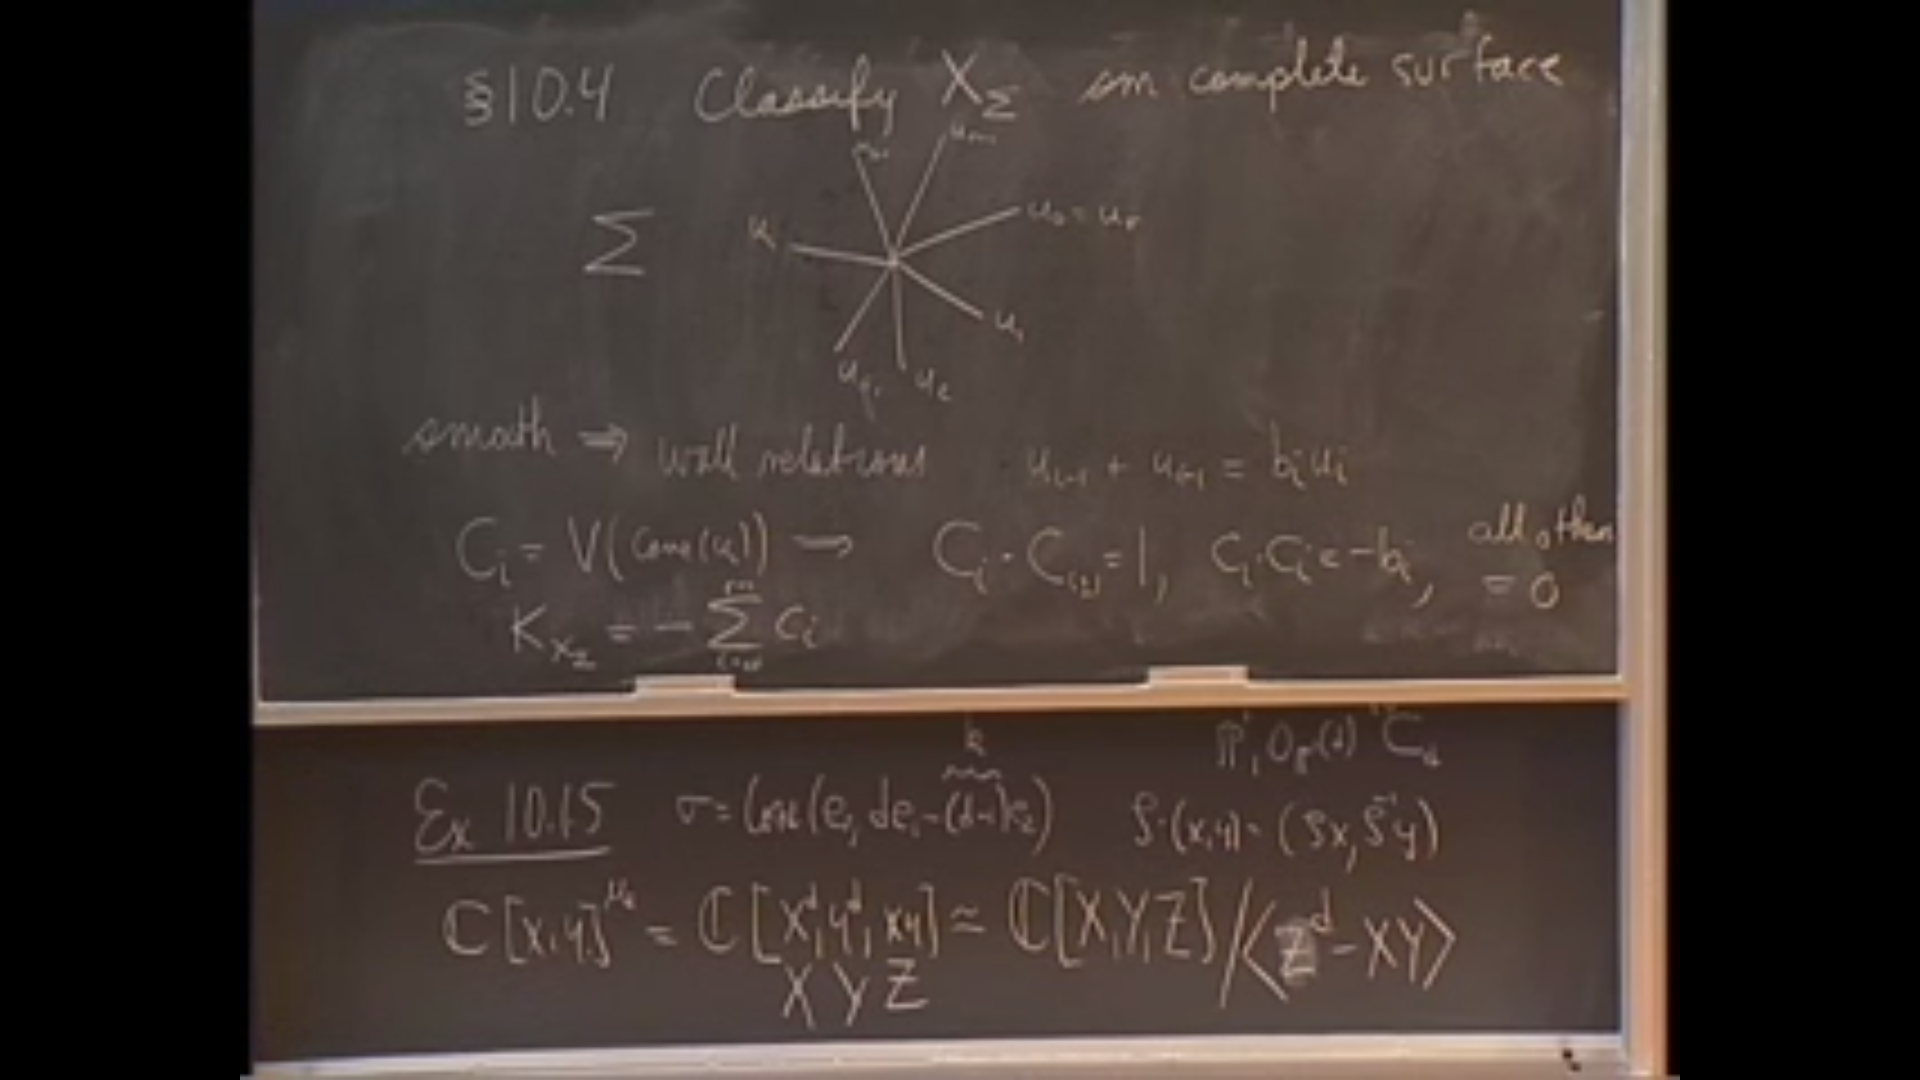 §10.4 Classify X_Σ sm complete surface
u_{r-1}
u_0 = u_r
Σ
u_i
u_1
u_2
smooth ⇒ wall relations u_{i-1} + u_{i+1} = b_i u_i
C_i = V(Cone(u_i)) → C_i · C_{i±1} = 1, C_i · C_i = -b_i, all others = 0
K_{X_Σ} = - Σ C_i
k
P^1, O_{P^1}(d) C_d
Ex 10.1.5 σ = Cone(e_2, de_1 - (d-1)e_2) ζ·(x,y) = (ζx, ζ^{-1}y)
C[x,y]^{μ_d} = C[x^d, y^d, xy] ≃ C[X,Y,Z]/⟨Z^d - XY⟩
X Y Z